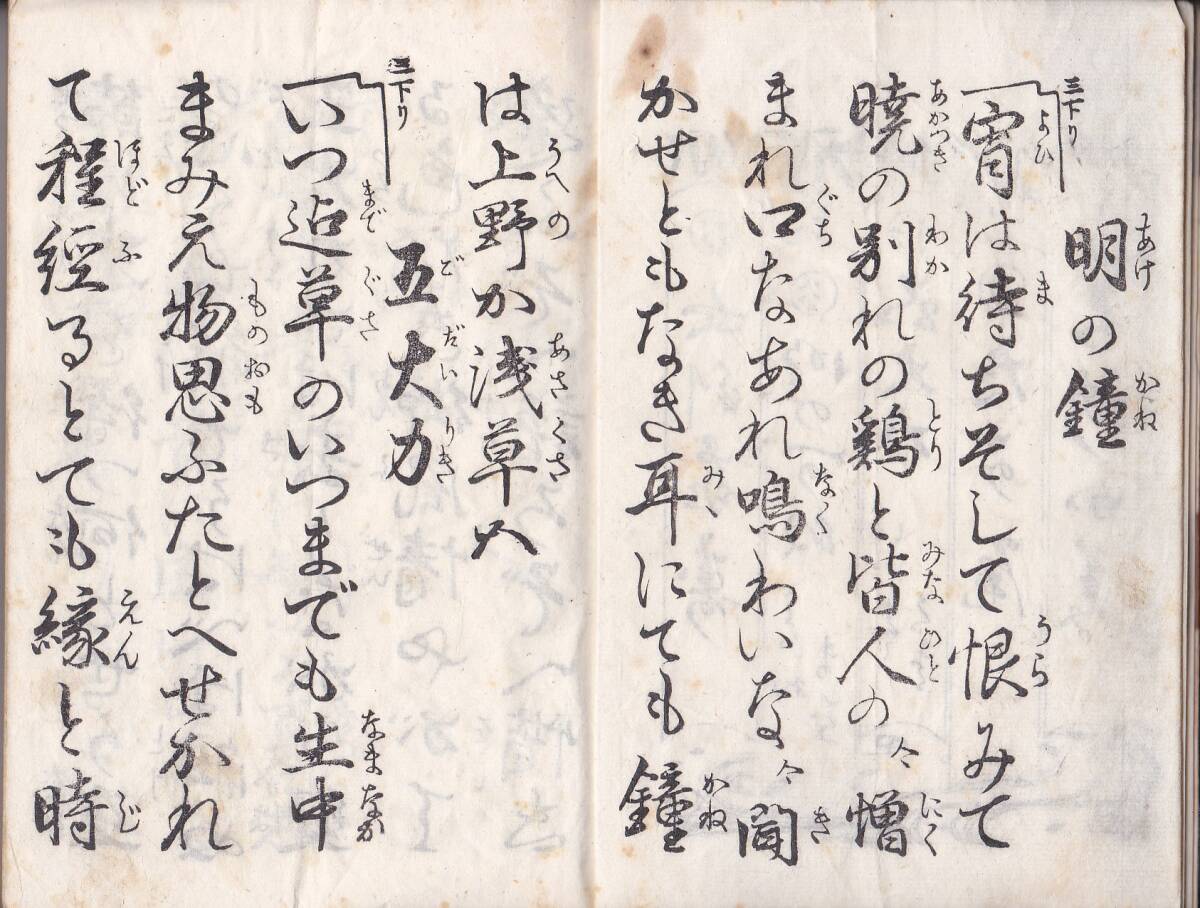 明の鐘
三下り
宵は待ちそして恨みて
暁の別れの鶏と皆人の 合 憎
まれ口なあれ鳴わいな 合 聞
かせともなき耳にても鐘
は上野か浅草か
五大力
三下り
いつ迨草のいつまでも生中
まみえ物思ふたとへせかれ
て程経るとても縁と時